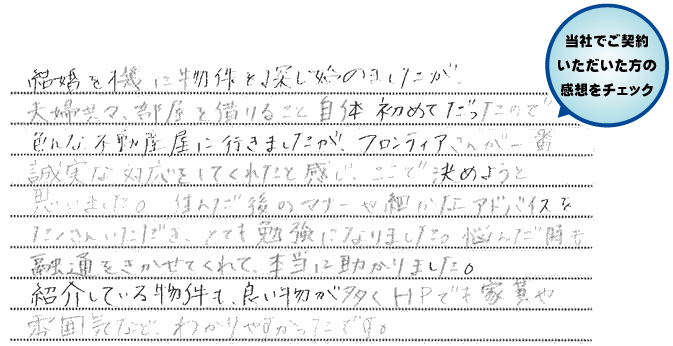 当社でご契約
いただいた方の
感想をチェック
結婚を機に物件を探し始めましたが、
夫婦共々、部屋を借りること自体初めてだったので
色んな不動産屋に行きましたが、フロンティアさんが一番
誠実な対応をしてくれたと感じ、ここで決めようと
思いました。住んだ後のマナーや細かなアドバイスを
たくさんいただき、とても勉強になりました。悩んだ時も
融通をきかせてくれて、本当に助かりました。
紹介している物件も、良い物が多くHPでも家賃や
雰囲気など、わかりやすかったです。